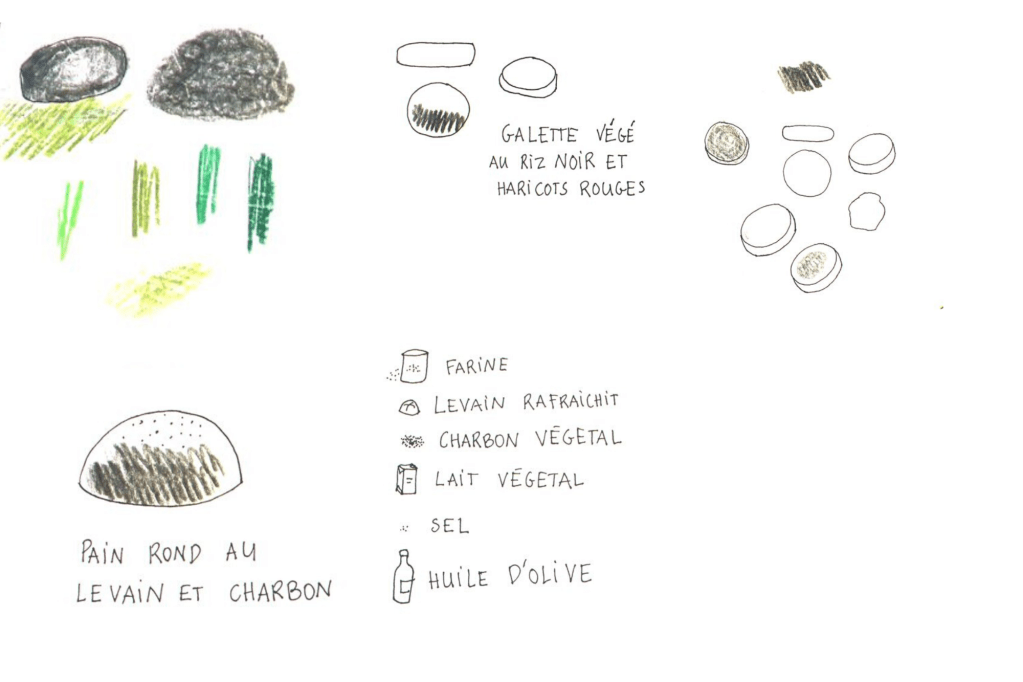 GALETTE VÉGÉ
AU RIZ NOIR ET
HARICOTS ROUGES
FARINE
LEVAIN RAFRAICHIT
CHARBON VÉGÉTAL
LAIT VÉGÉTAL
SEL
HUILE D'OLIVE
PAIN ROND AU
LEVAIN ET CHARBON